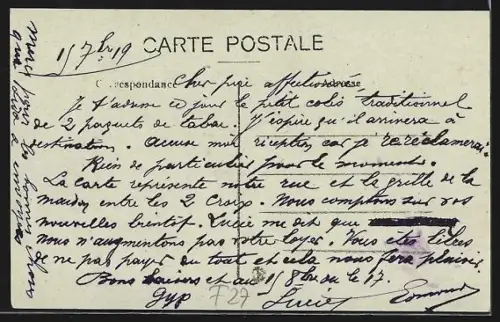 15 7bre 19
CARTE POSTALE
Correspondance
Adresse
Cher affectionné
Je t'adresse ce jour le petit colis traditionnel
de 2 paquets de tabac. J'espère qu'il arrivera à
destination. Accuse moi réception car je réclamerai
Rien de particulier pour le moment.
La carte représente notre rue et la grille de la
maison entre les 2 Croix. Nous comptons sur vos
nouvelles bientôt. Lucie me dit que
nous n'augmentons pas votre loyer. Vous êtes libres
de ne pas payer du tout et cela nous fera plaisir.
Bons baisers et au 15 8bre ou le 17.
Gyp
Lucie
Edmond
F27